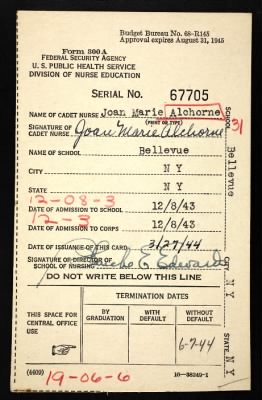 Budget Bureau No. 68-R145
Approval expires August 31, 1945
Form 300A
FEDERAL SECURITY AGENCY
U. S. PUBLIC HEALTH SERVICE
DIVISION OF NURSE EDUCATION
SERIAL NO. 67705
NAME OF CADET NURSE Joan Marie Alchorne
(PRINT OR TYPE)
SIGNATURE OF CADET NURSE Joan Marie Alchorne
NAME OF SCHOOL Bellevue
CITY N Y
STATE N Y
12-08-3
DATE OF ADMISSION TO SCHOOL 12/8/43
12-3
DATE OF ADMISSION TO CORPS 12/8/43
DATE OF ISSUANCE OF THIS CARD 3/27/44
SIGNATURE OF DIRECTOR OF SCHOOL OF NURSING Blanche E. Edwards
DO NOT WRITE BELOW THIS LINE
THIS SPACE FOR CENTRAL OFFICE USE
TERMINATION DATES
BY GRADUATION
WITH DEFAULT
WITHOUT DEFAULT
6-7-44
(4409)
16-38249-1
19-06-6
SCHOOL Bellevue
31
CITY N Y
STATE N Y